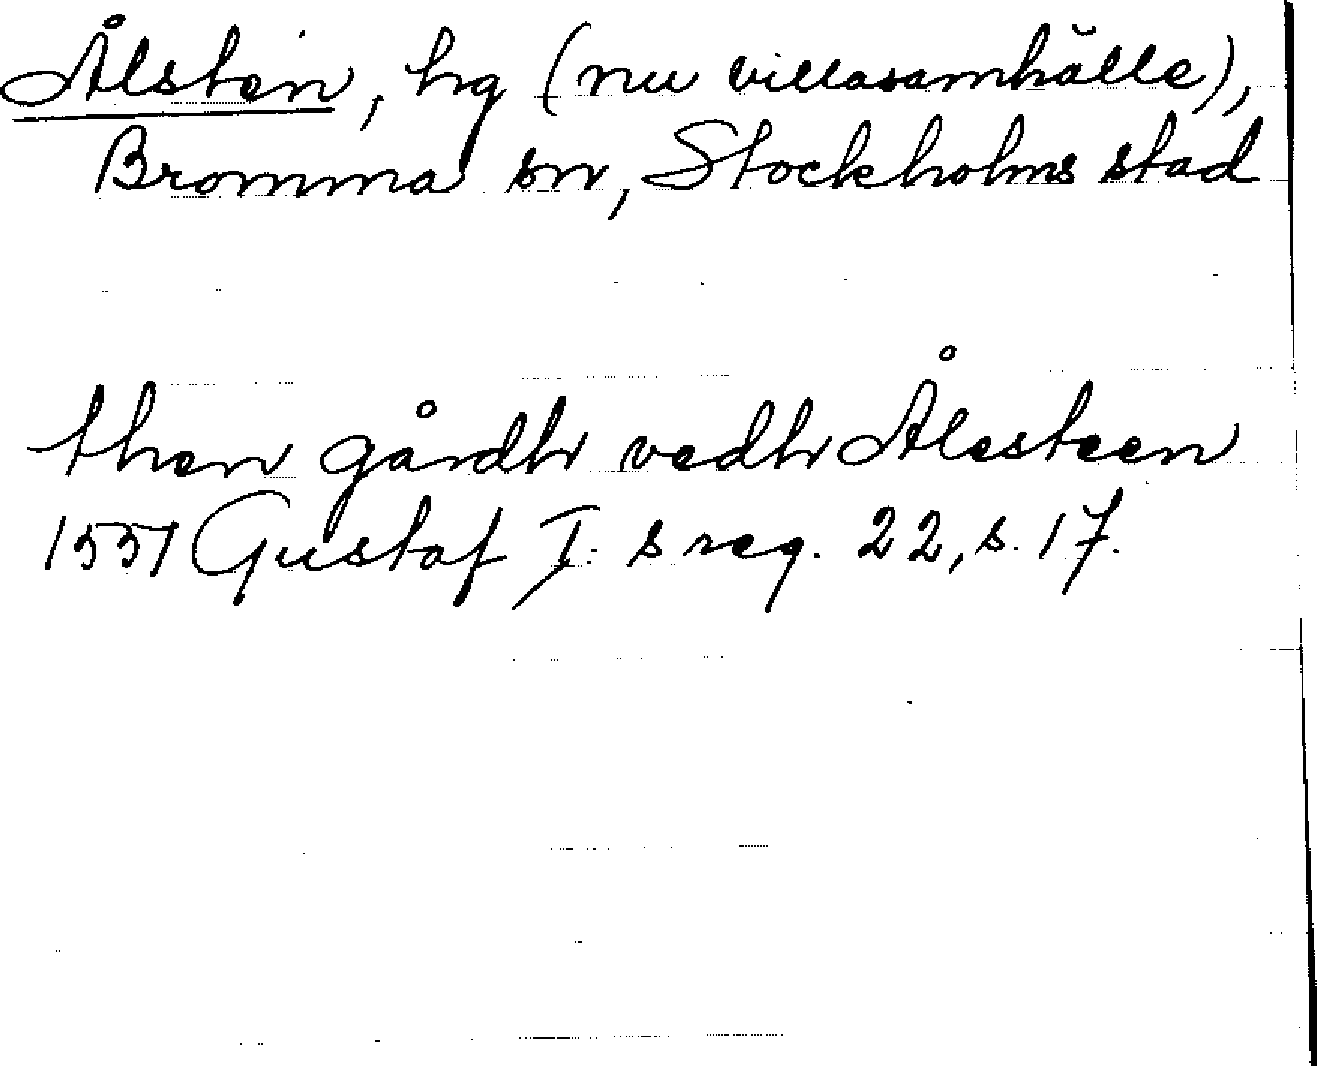 Ålsten, hg (nu villasamhälle),
Bromma sn, Stockholms stad
then gårdh vedh Ålesteen
1551 Gustaf I:s reg. 22, s. 17.